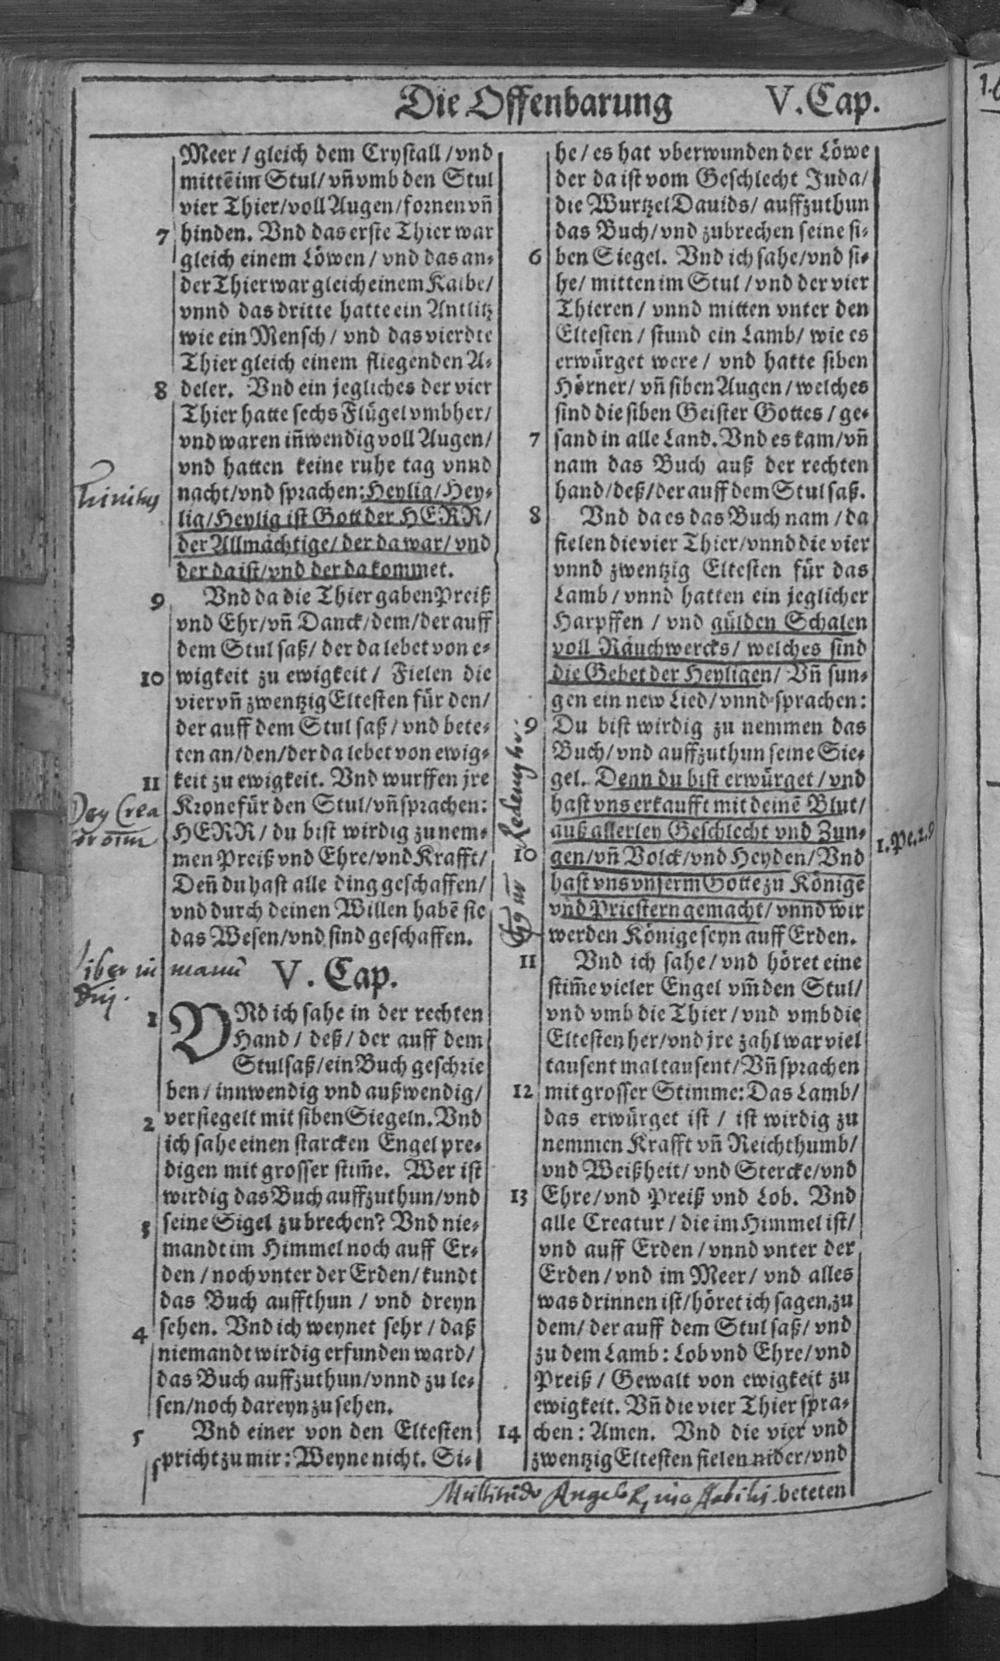 Die Offenbarung V. Cap.
Meer / gleich dem Crystall / vnd
mittẽ im Stul / vñ vmb den Stul
vier Thier / voll Augen / fornen vñ
7 hinden. Vnd das erste Thier war
gleich einem Löwen / vnd das an-
der Thier war gleich einem Kalbe /
vnnd das dritte hatte ein Antlitz
wie ein Mensch / vnd das vierdte
Thier gleich einem fliegenden A-
8 deler. Vnd ein jegliches der vier
Thier hatte sechs Flügel vmbher /
vnd waren iñwendig voll Augen /
vnd hatten keine ruhe tag vnnd
nacht / vnd sprachen: Heylig / Hey-
lig / Heylig ist Gott der HERR /
der Allmächtige / der da war / vnd
der da ist / vnd der da kommet.
9 Vnd da die Thier gaben Preiß
vnd Ehr / vñ Danck / dem / der auff
dem Stul saß / der da lebet von e-
10 wigkeit zu ewigkeit / Fielen die
vier vñ zwentzig Eltesten für den /
der auff dem Stul saß / vnd bete-
ten an / den / der da lebet von ewig-
11 keit zu ewigkeit. Vnd wurffen jre
Krone für den Stul / vñ sprachen:
HERR / du bist wirdig zu nem-
men Preiß vnd Ehre / vnd Krafft /
Deñ du hast alle ding geschaffen /
vnd durch deinen Willen habẽ sie
das Wesen / vnd sind geschaffen.
liber in manu
V. Cap.
1 VNd ich sahe in der rechten
Hand / deß / der auff dem
Stul saß / ein Buch geschrie
ben / innwendig vnd außwendig /
2 versiegelt mit siben Siegeln. Vnd
ich sahe einen starcken Engel pre-
digen mit grosser stim̃e. Wer ist
wirdig das Buch auffzuthun / vnd
3 seine Sigel zubrechen? Vnd nie-
mandt im Himmel noch auff Er-
den / noch vnter der Erden / kundt
das Buch auffthun / vnd dreyn
4 sehen. Vnd ich weynet sehr / daß
niemandt wirdig erfunden ward /
das Buch auffzuthun / vnnd zu le-
sen / noch dareyn zu sehen.
5 Vnd einer von den Eltesten
spricht zu mir: Weyne nicht. Si-
he / es hat vberwunden der Löwe
der da ist vom Geschlecht Juda /
die Wurtzel Dauids / auffzuthun
das Buch / vnd zubrechen seine si-
6 ben Siegel. Vnd ich sahe / vnd si-
he / mitten im Stul / vnd der vier
Thieren / vnnd mitten vnter den
Eltesten / stund ein Lamb / wie es
erwürget were / vnd hatte siben
Hörner / vñ siben Augen / welches
sind die siben Geister Gottes / ge-
7 sand in alle Land. Vnd es kam / vñ
nam das Buch auß der rechten
hand / deß / der auff dem Stul saß.
8 Vnd da es das Buch nam / da
fielen die vier Thier / vnnd die vier
vnnd zwentzig Eltesten für das
Lamb / vnnd hatten ein jeglicher
Harpffen / vnd gülden Schalen
voll Räuchwercks / welches sind
die Gebet der Heyligen / Vñ sun-
gen ein new Lied / vnnd sprachen:
9 Du bist wirdig zu nemmen das
Buch / vnd auffzuthun seine Sie-
gel. Denn du bist erwürget / vnd
hast vns erkaufft mit deinẽ Blut /
auß allerley Geschlecht vnd Zun-
1. Pe. 2. 9
10 gen / vñ Volck / vnd Heyden / Vnd
hast vns vnserm Gotte zu Könige
vnd Priestern gemacht / vnnd wir
werden Könige seyn auff Erden.
11 Vnd ich sahe / vnd höret eine
stim̃e vieler Engel vm̃ den Stul /
vnd vmb die Thier / vnd vmb die
Eltesten her / vnd jre zahl war viel
tausent mal tausent / Vñ sprachen
12 mit grosser Stimme: Das Lamb /
das erwürget ist / ist wirdig zu
nemmen Krafft vñ Reichthumb /
vnd Weißheit / vnd Stercke / vnd
13 Ehre / vnd Preiß vnd Lob. Vnd
alle Creatur / die im Himmel ist /
vnd auff Erden / vnnd vnter der
Erden / vnd im Meer / vnd alles
was drinnen ist / höret ich sagen, zu
dem / der auff dem Stul saß / vnd
zu dem Lamb: Lob vnd Ehre / vnd
Preiß / Gewalt von ewigkeit zu
ewigkeit. Vñ die vier Thier spra-
14 chen: Amen. Vnd die vier vnd
zwentzig Eltesten fielen nider / vnd
beteten